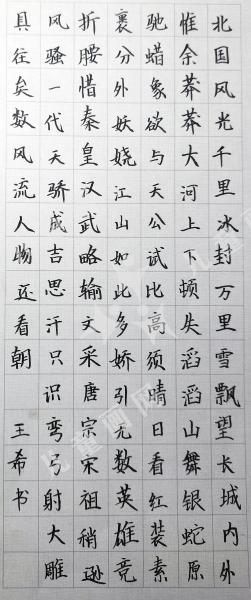 北国风光千里冰封万里雪飘望长城内外
惟余莽莽大河上下顿失滔滔山舞银蛇原
驰蜡象欲与天公试比高须晴日看红装素
裹分外妖娆江山如此多娇引无数英雄竞
折腰惜秦皇汉武略输文采唐宗宋祖稍逊
风骚一代天骄成吉思汗只识弯弓射大雕
具往矣数风流人物还看朝
王希书